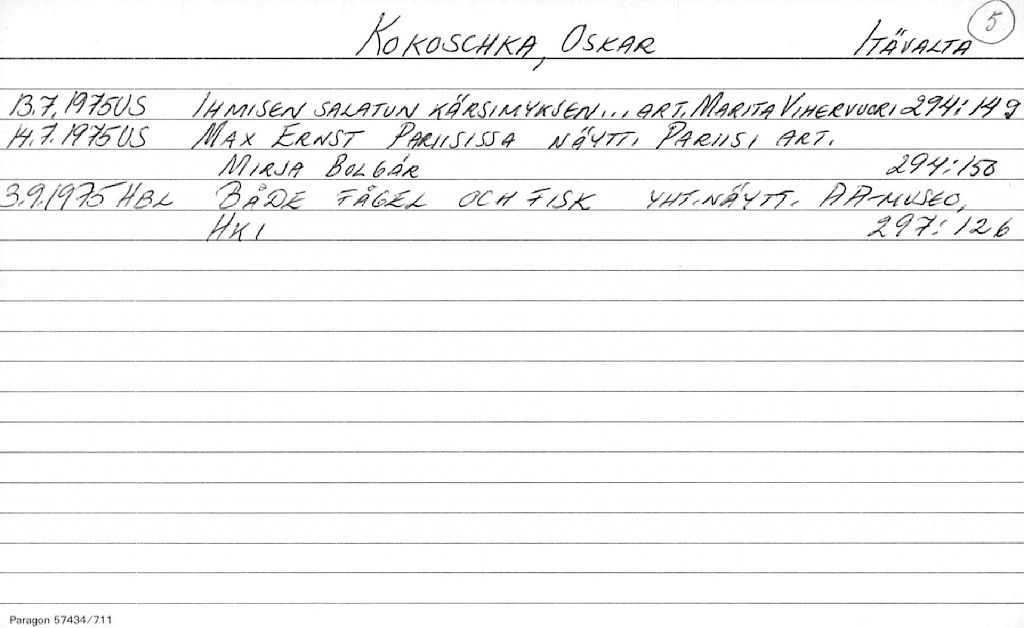 KOKOSCHKA, OSKAR ITÄVALTA 5
13.7.1975 US IHMISEN SALATUN KÄRSIMYKSEN... ART. MARITA VIHERVUORI 294:149
14.7.1975 US MAX ERNST PARIISISSA NÄYTT. PARIISI ART.
MIRJA BOLGÁR 294:150
3.9.1975 HBL BÅDE FÅGEL OCH FISK YHT.NÄYTT. AA-MUSEO,
HKI 297:126
Paragon 57434/711